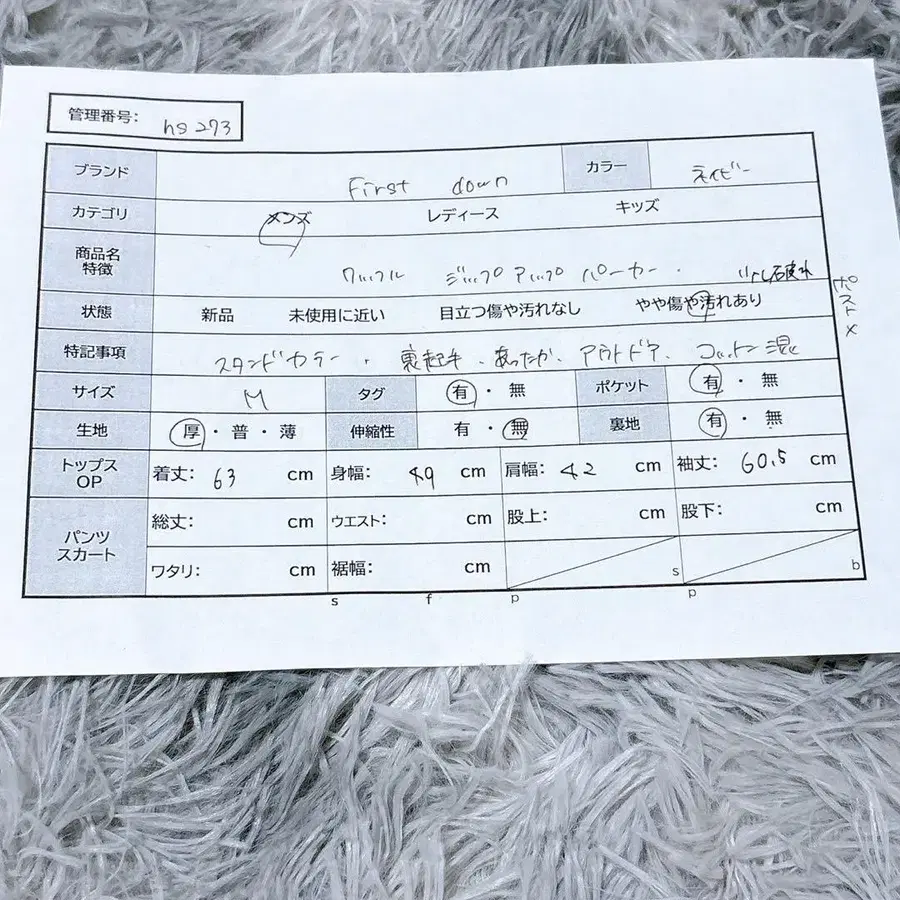 管理番号: hs 273
ブランド First down カラー ネイビー
カテゴリ メンズ レディース キッズ
商品名 特徴 ワッフル ジップアップ パーカー.
状態 新品 未使用に近い 目立つ傷や汚れなし やや傷や汚れあり
ポストx
特記事項 スタンドカラー . 裏起毛 . あったか . アウトドア . コットン混
サイズ M タグ 有・無 ポケット 有・無
生地 厚・普・薄 伸縮性 有・無 裏地 有・無
トップス OP 着丈: 63 cm 身幅: 49 cm 肩幅: 42 cm 袖丈: 60.5 cm
パンツ スカート 総丈: cm ウエスト: cm 股上: cm 股下: cm
ワタリ: cm 裾幅: cm s b
s f p p